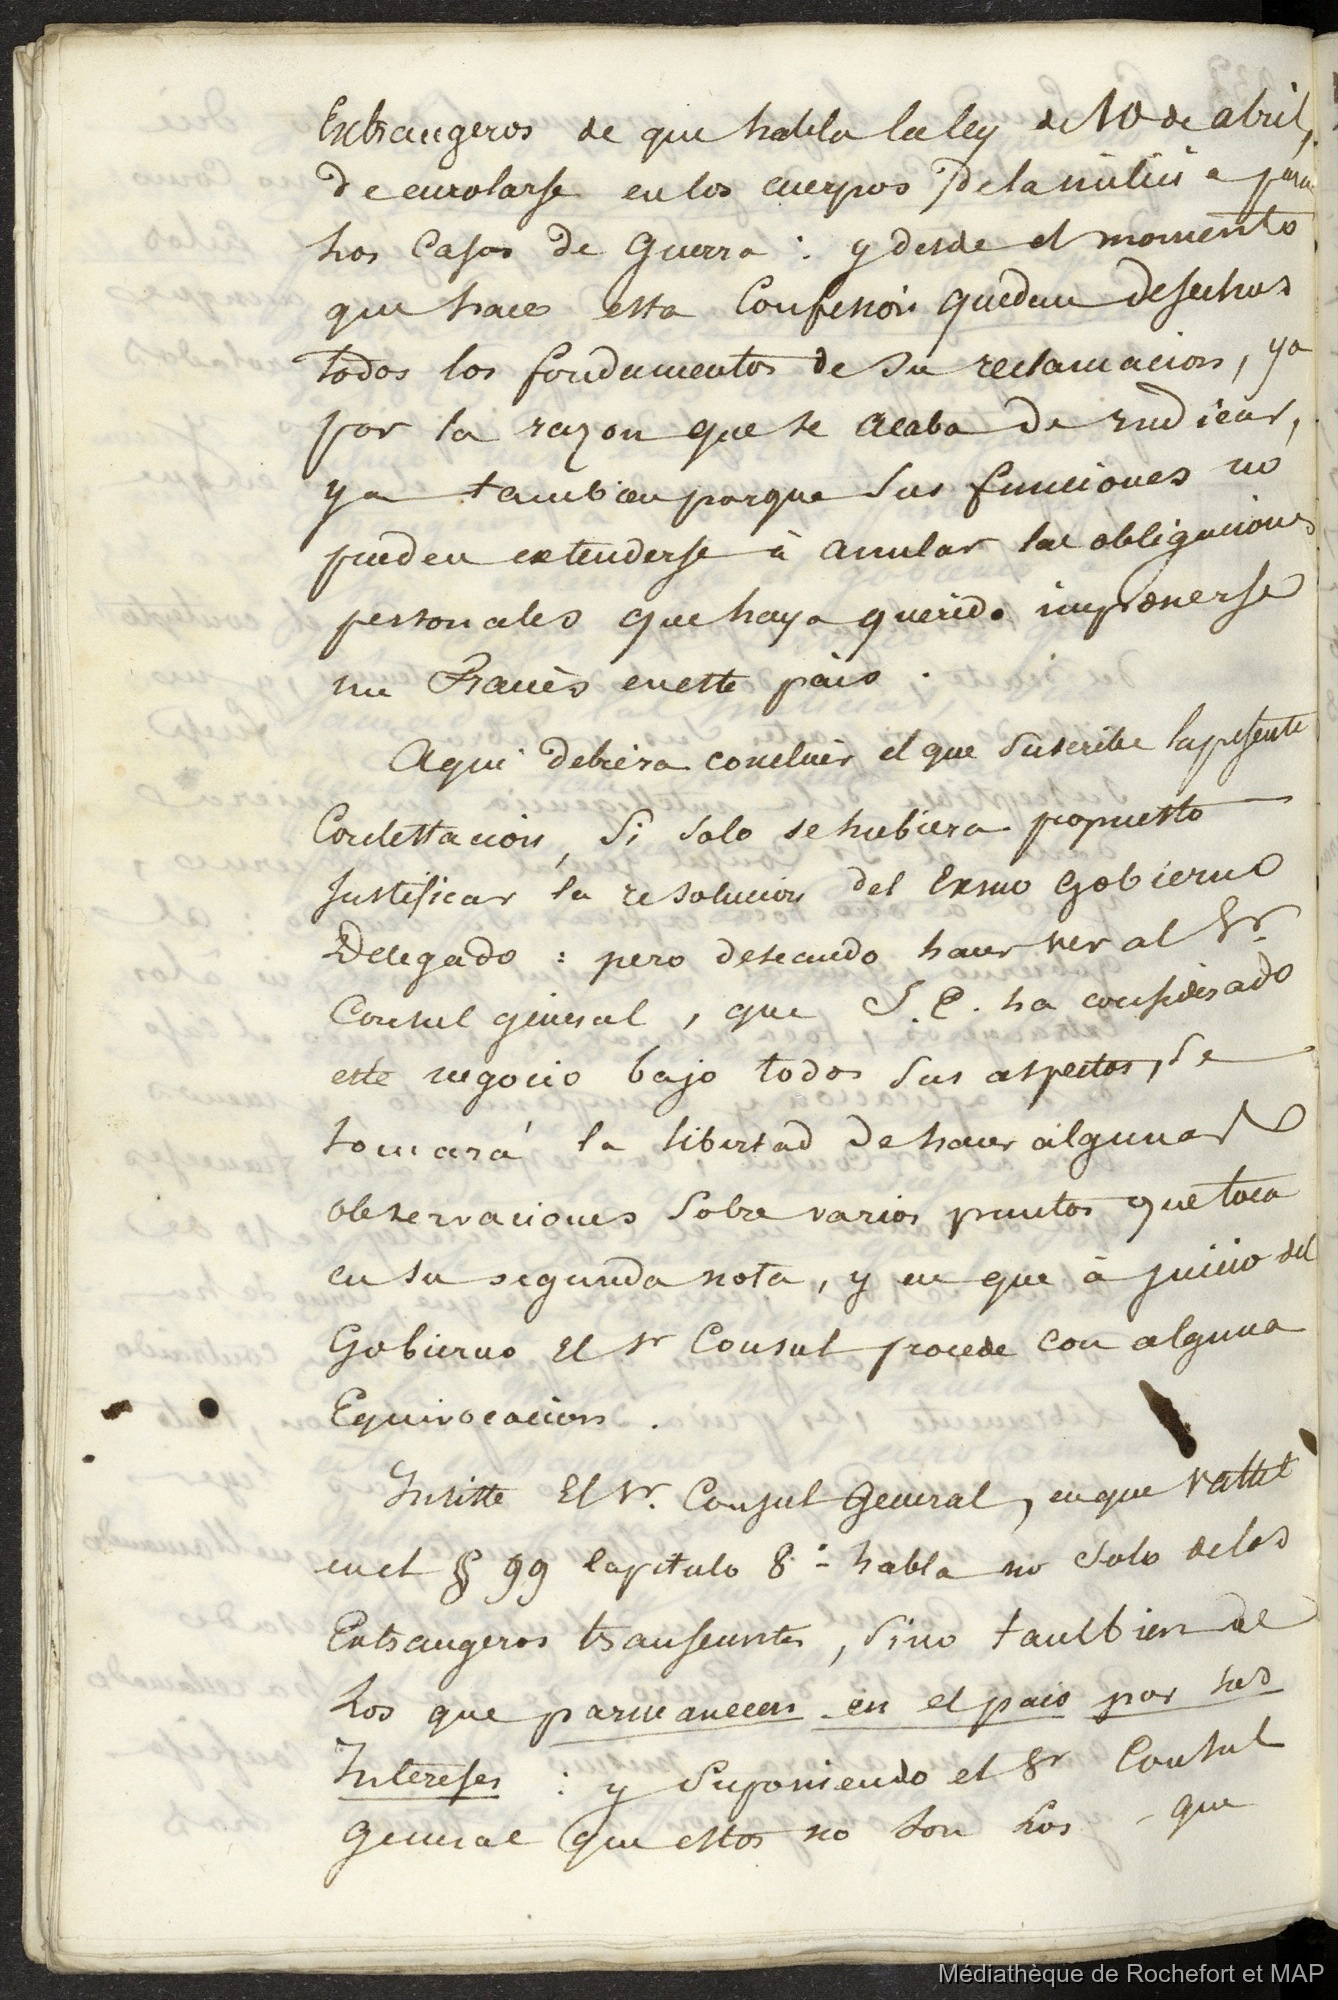 Extrangeros de que habla la ley de 10 de abril,
de enrolarse en los cuerpos de la milicia para
los Casos de Guerra : y desde el momento
que hace esta Confesion quedan desechos
todos los fondamentos de su reclamacion, ya
por la razon que se acaba de indicar,
ya tambien porque sus funciones no
pueden extenderse à anular las obligaciones
personales que haya querido imponerse
un Francès en este pais .
Aqui debiera concluir el que suscribe la presente
Contestacion, si solo se hubiera propuesto
Justificar la resolucion del Exmo Gobierno
Delegado : pero deseando hacer ver al Sr.
Consul general , que S. E. ha considerado
este negocio bajo todos sus aspectos, se
tomará la libertad de hacer algunas
observaciones sobre varios puntos que toca
en su segunda nota, y en que à juicio del
Gobierno El Sr Consul procede con alguna
Equivocacion .
Insiste El Sr. Consul General, en que Vattel
en el § 99 Capitulo 8.º habla no solo de los
Extrangeros transeuntes , sino tambien de
Los que parmanecen en el pais por sus
Intereses : y suponiendo el Sr Consul
General que estos no son Los - que
Médiathèque de Rochefort et MAP